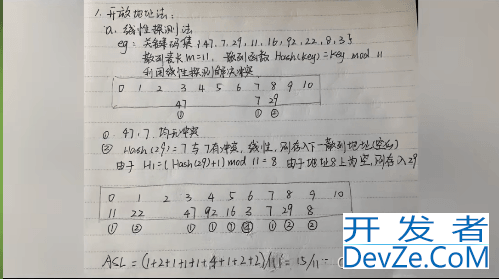 1. 开放地址法:
a. 线性探测法
eg: 关键码集{47,7,29,11,16,92,22,8,3}
散列表长m=11, 散列函数Hash(key)=key mod 11
利用线性探测解决冲突
0 1 2 3 4 5 6 7 8 9 10
47 7 29
① ① ②
① 47、7 均无冲突
② Hash(29)=7 与7有冲突, 线性, 则存入下一散列地址(空位)
由于 H1=(Hash(29)+1) mod 11=8 由于地址8上为空, 则存入29
0 1 2 3 4 5 6 7 8 9 10
11 22 47 92 16 3 7 29 8
① ② ① ① ① ④ ① ② ②
ASL=(1+2+1+1+1+4+1+2+2)/
=15/
开发者
DevZe.CoM